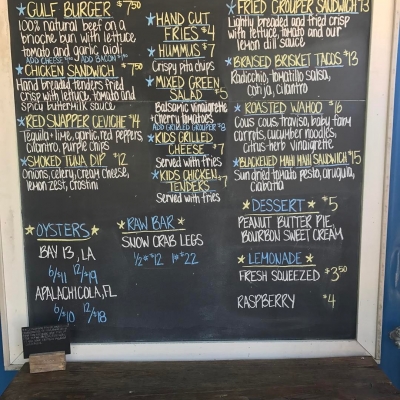 GULF BURGER $7.50
100% natural beef on a
brioche bun with lettuce,
tomato and garlic aioli
ADD CHEESE ADD BACON
CHICKEN SANDWICH $7.50
Hand breaded tenders fried
crisp with lettuce, tomato and
spicy buttermilk sauce.
RED SNAPPER CEVICHE $14
Tequila + lime, garlic, red peppers,
cilantro, purple chips
SMOKED TUNA DIP $12
Onions, celery, cream cheese,
lemon zest, crostini
OYSTERS
BAY 13, LA
6/$11 12/$19
APALACHICOLA, FL
6/$10 12/$18
HAND CUT
FRIES $4
HUMMUS $7
Crispy pita chips
MIXED GREEN
SALAD $5
Balsamic vinaigrette
+ cherry tomatoes
ADD GRILLED GROUPER $8
KIDS GRILLED
CHEESE $7
Served with fries
KIDS CHICKEN
TENDERS $7
Served with fries
RAW BAR
SNOW CRAB LEGS
1/2# $12 1# $22
FRIED GROUPER SANDWICH 13
Lightly breaded and fried crisp
with lettuce, tomato and our
lemon dill sauce
BRAISED BRISKET TACOS $13
Radicchio, tomatillo salsa,
cotija, cilantro
ROASTED WAHOO $16
Cous cous, baby
carrots, cucumber noodles,
citrus-herb vinaigrette
BLACKENED MAHI MAHI SANDWICH $15
Sun dried tomato pesto, arugula,
ciabatta
DESSERT $5
PEANUT BUTTER PIE,
BOURBON SWEET CREAM
LEMONADE
FRESH SQUEEZED $3.50
RASPBERRY $4